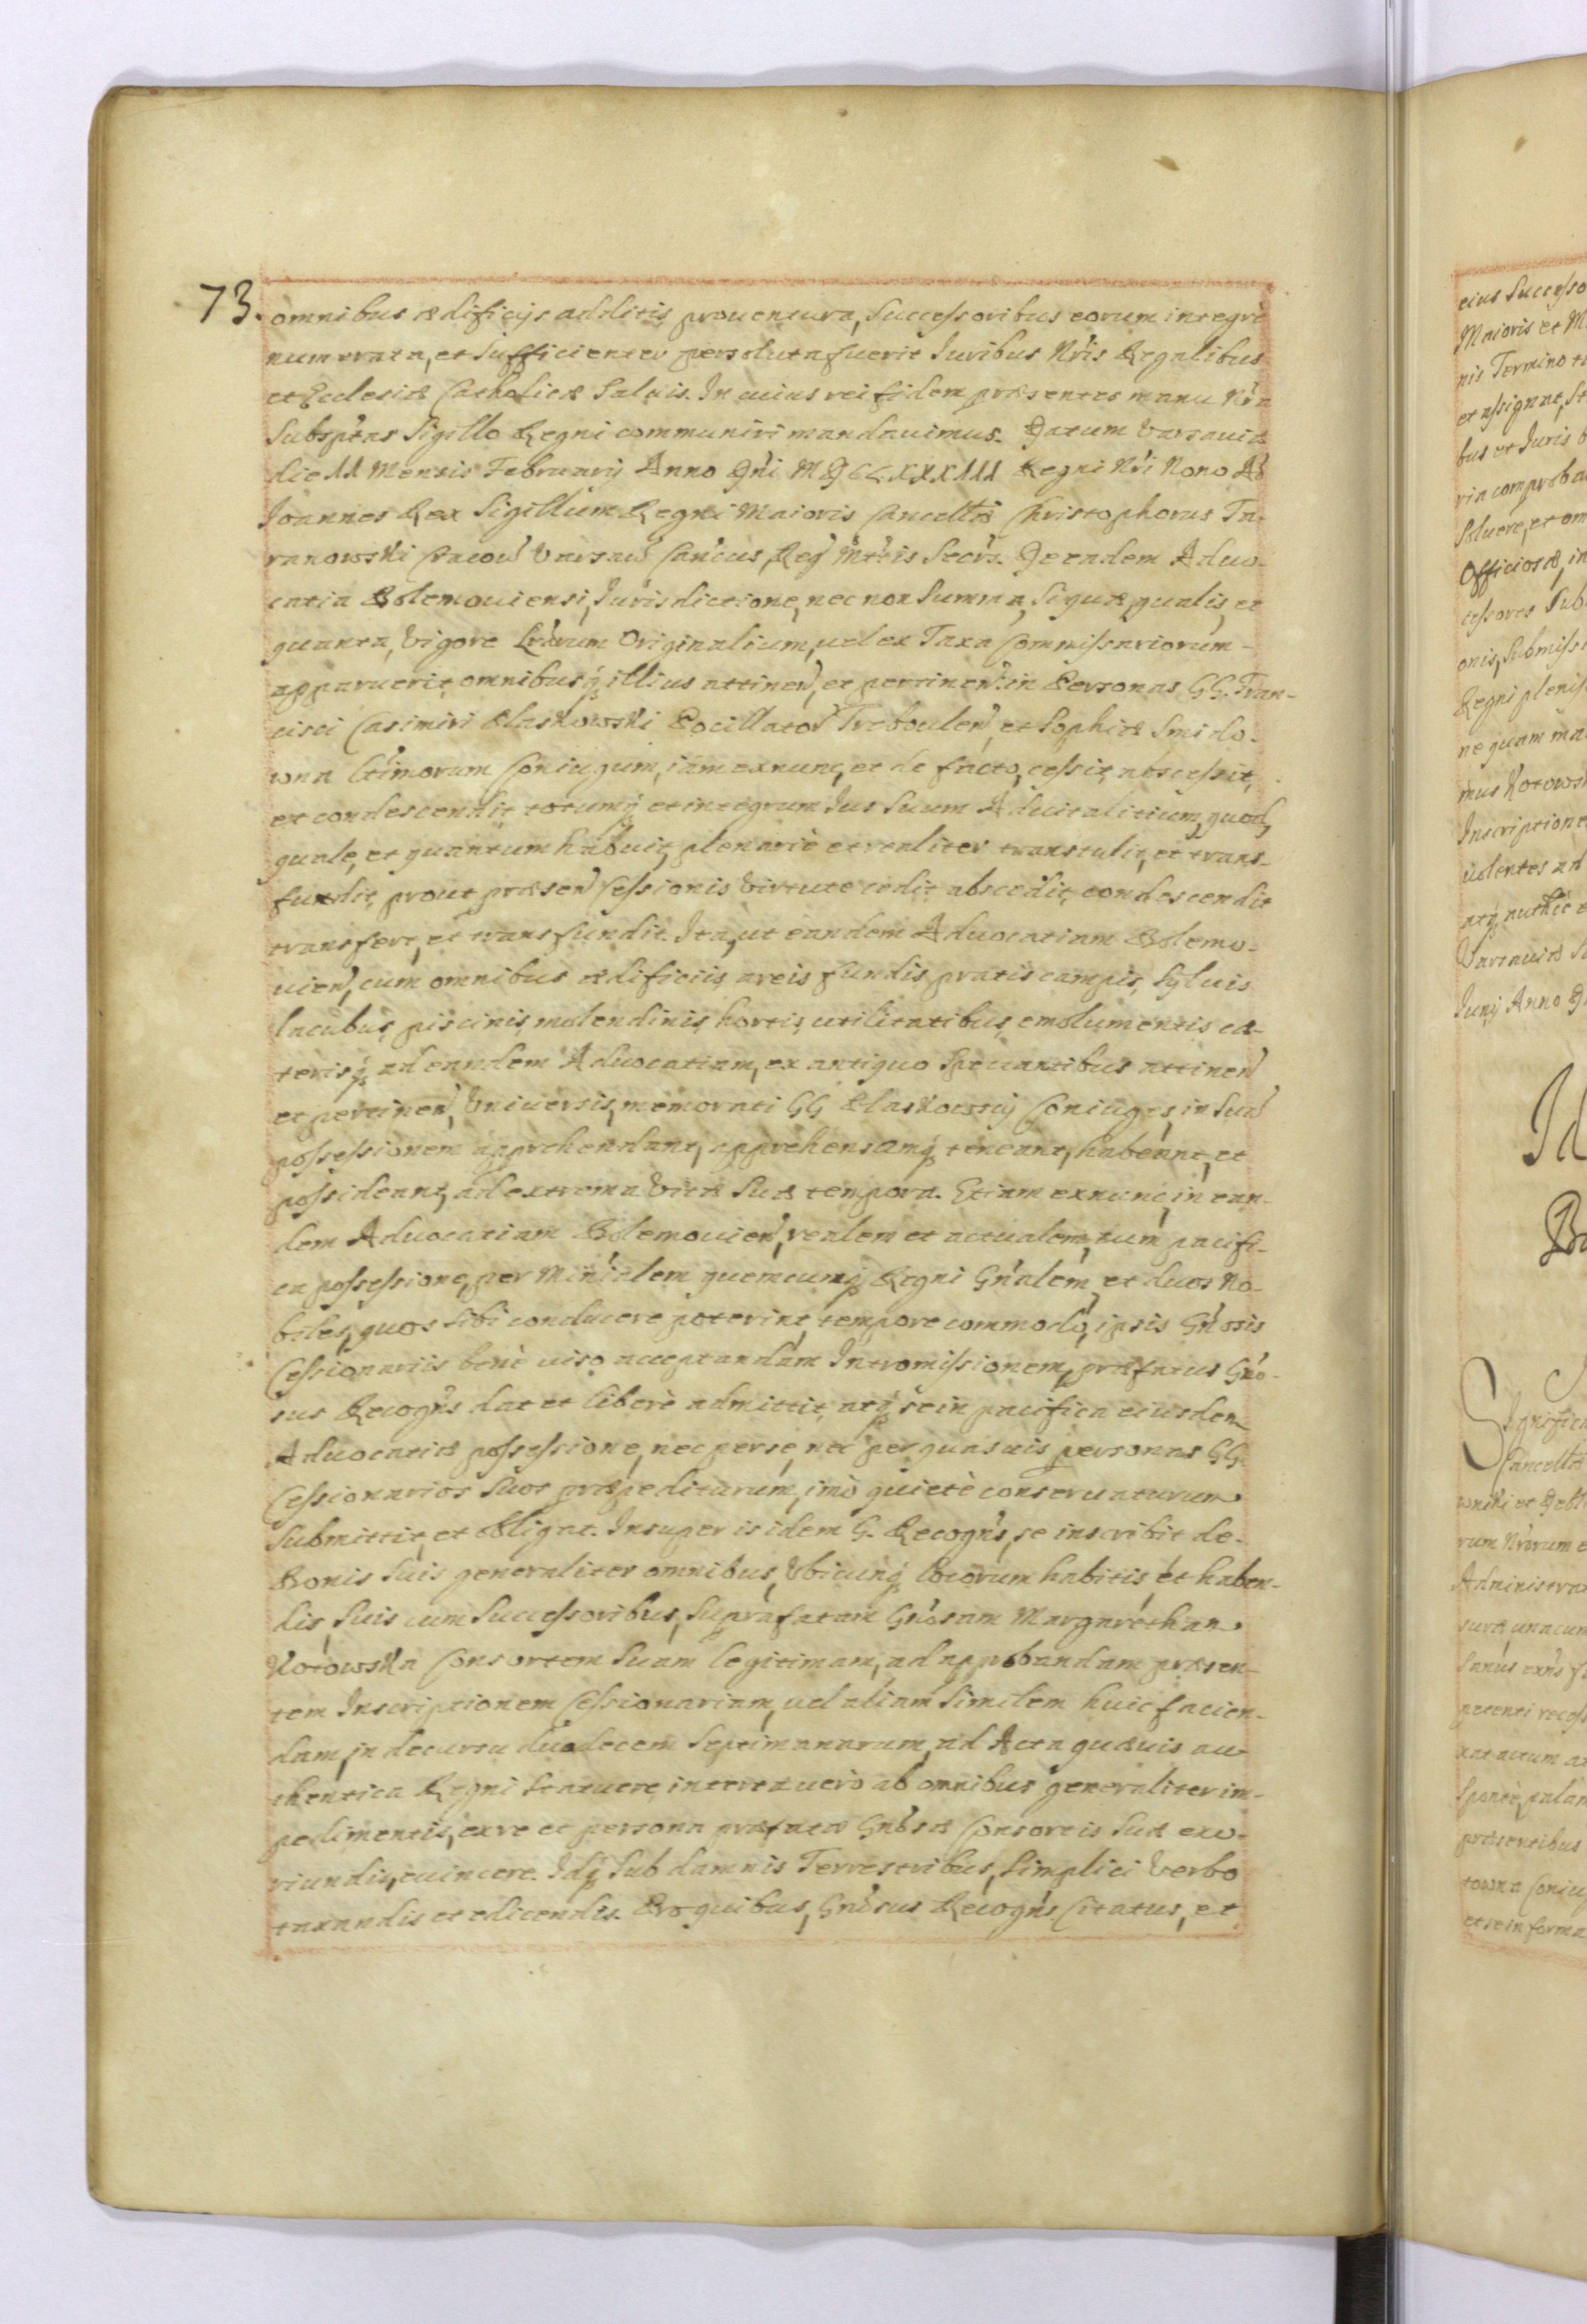 73.
omnibus ædificijs additis prouentura, Successoribus eorum integrè
numerata, et Sufficienter persoluta fuerit Iuribus Nrïs Regalibus
et Ecclesiæ Catholicæ Saluis. In cuius rei fidem præsentes manu Nrä
Subsptas Sigillo Regni communiri mandauimus. Datum Varsauiæ
die 11 Mensis Februarij Anno Dni MDCLXXXIII Regni Nri Nono
Ioannes Rex Sigillum Regni Maioris Cancellæ Christophorus Ta-
ranowski Cracou Varsau Can'cus, Reg Mttis Secrs. De eadem Aduo-
catia Bolemouiensi, Jurisdictione, nec non Summa, Siquæ, qualis, et
quanta, Vigore Lrarum Originalium, uel ex Taxa Commissariorum
apparuerit, omnibusq illius attinen, et pertinen: in Personas GG. Fran-
cisci Casimiri Blaskowski Pocillator Treboulen, et Sophiæ Smido-
wna Ctimorum Coniugum, iam exnunc, et de facto, cessit, abscessit,
et condescendit totumq et integrum Ius Suum Aduitalitium, quod,
quale, et quantum habuit, plenariè et realiter transtulit, et trans-
fundit, prout præsen Cessionis Virtute cedit abscedit, condescendit
transfert, et transfundit. Ita, ut eandem Aduocatiam Bolemo-
uien, cum omnibus ædificiis, areis fundis, pratis campis, Syluis
lacubus, piscinis, molendinis, hortis, utilitatibus, emolumentis cæ-
terisq, ad eandem Aduocatiam, ex antiquo Spectantibus attinen
et pertinen, Vniuersis, memorati GG Blaskowscij Coniuges, in Sua
possessionem apprehendant, apprehensamq teneant, habeant, et
possideant, ad extrema Vitæ Suæ tempora. Etiam exnunc, in ean-
dem Aduocatiam Bolemouien, realem et actualem, cum pacifi-
ca possessione, per Min'ialem quemcumq Regni Gn'alem, et duos No-
biles, quos Sibi conducere poterint, tempore commodo, ipsis Gn'osis
Cessionariis benè uiso acceptandam Intromissionem, præfatus Gn'o-
sus Recogn's dat et liberè admittit, atq se in pacifica eiusdem
Aduocatiæ possessione, nec per se, nec per quasuis personas GG.
Cessionarios Suos præpediturum, imò quietè conseruaturum
Submittit, et obligat. Insuper is idem G. Recogn's, se inscribit de
Bonis Suis generaliter omnibus, Vbicunq locorum habitis et haben-
dis, Suis cum Successoribus, Suprafatam Gn'osam Margaretham
Kotowska Consortem Suam legitimam, ad approbandam præsen-
tem Inscriptionem Cessionariam, uel aliam Similem huic facien-
dam, in decursu duodecem Septimanarum, ad Acta quæuis au-
thentica Regni Statuere, interea uerò ab omnibus generaliter im-
pedimentis, ex re et persona præfatæ Gn'osæ Consortis Suæ exo-
riundis, euincere. Idq Sub damnis Terrestribus, Simplici Verbo
taxandis et edicendis. Pro quibus, Gn'osus Recogn's Citatus, et
eius Successo
Maioris et M
nis Termino
et assignat, St
bus et Iuris
ria comproba
Soluere, et om
Officiosæ, in
cessores Sub
onis, Submiss
Regni plenis
ne quam ma
mus Kotows
Inscriptione
uolentes ad
Varsauiæ
Iunij Anno D
Significa
Cancellæ
rum Nrorum e
Administra
suræ, una cum
petenti
Sponte, palam
præsentibus
towna Coniu
et se in forma